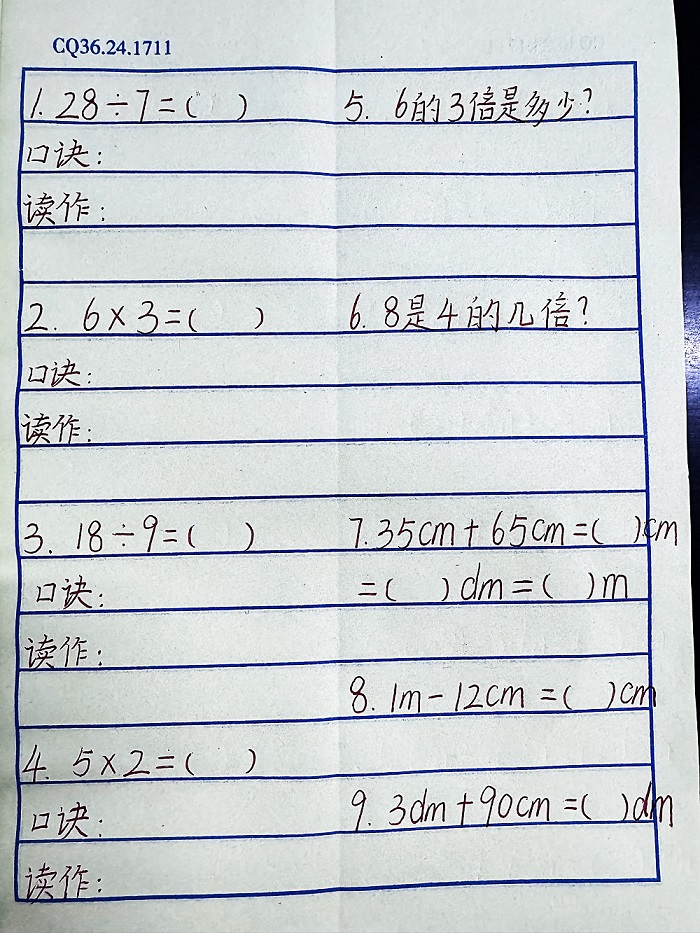 CQ36.24.1711
1. 28÷7=( )
口诀：
读作：
2. 6×3=( )
口诀：
读作：
3. 18÷9=( )
口诀：
读作：
4. 5×2=( )
口诀：
读作：
5. 6的3倍是多少?
6. 8是4的几倍?
7. 35cm+65cm=( )cm
=( )dm=( )m
8. 1m-12cm=( )cm
9. 3dm+90cm=( )dm